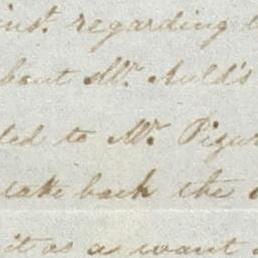 inst. regarding
about Mr. Auld's
to Mr.
take back the
it as a want